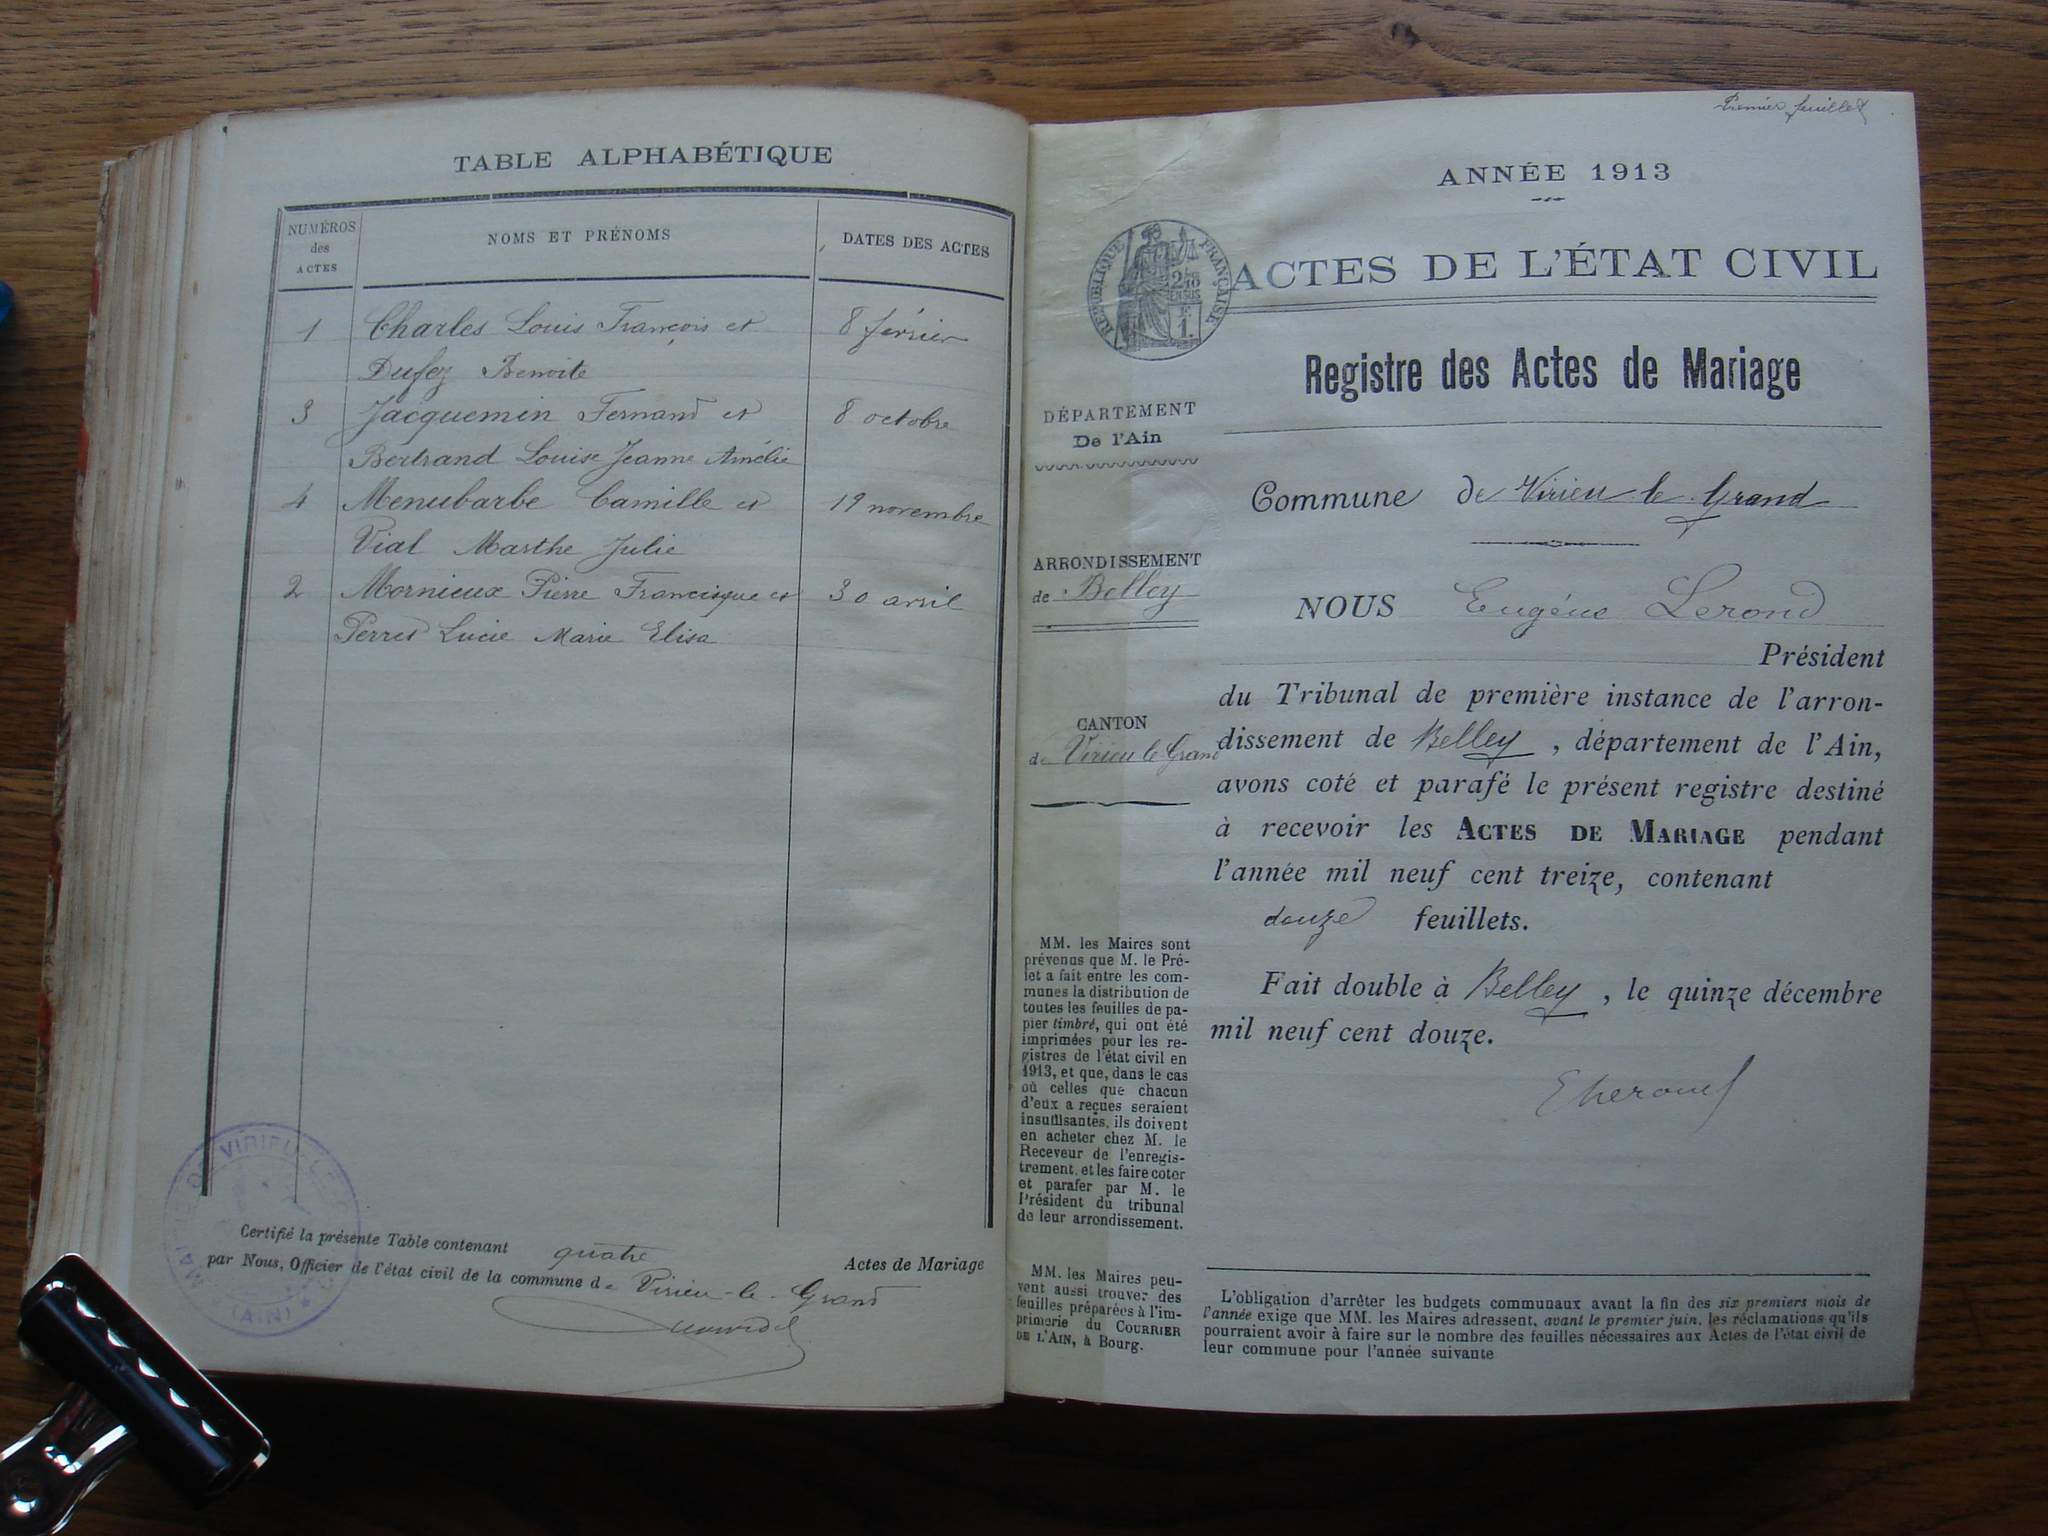 TABLE ALPHABÉTIQUE
NUMÉROS des ACTES
NOMS ET PRÉNOMS
DATES DES ACTES
1 Charles Louis François et 8 février
Dufez Benoite
3 Jacquemin Fernand et 8 octobre
Bertrand Louise Jeanne Amélie
4 Menubarbe Camille et 19 novembre
Vial Marthe Julie
2 Mornieux Pierre Francisque et 30 avril
Perret Lucie Marie Elisa
Certifié la présente Table contenant quatre Actes de Mariage
par Nous, Officier de l'état civil de la commune de Virieu-le-Grand
(AIN)
Premier feuillet
ANNÉE 1913
RÉPUBLIQUE FRANÇAISE
ACTES DE L'ÉTAT CIVIL
Registre des Actes de Mariage
DÉPARTEMENT
De l'Ain
Commune de Virieu le Grand
ARRONDISSEMENT
de Belley
NOUS Eugène Lerond
Président
du Tribunal de première instance de l'arron-
dissement de Belley, département de l'Ain,
avons coté et parafé le présent registre destiné
à recevoir les ACTES DE MARIAGE pendant
l'année mil neuf cent treize, contenant
douze feuillets.
Fait double à Belley, le quinze décembre
mil neuf cent douze.
CANTON
de Virieu le Grand
MM. les Maires sont
prévenus que M. le Pré-
fet a fait entre les com-
munes la distribution de
toutes les feuilles de pa-
pier timbré, qui ont été
imprimées pour les re-
gistres de l'état civil en
1913, et que, dans le cas
où celles que chacun
d'eux a reçues seraient
insuffisantes, ils doivent
en acheter chez M. le
Receveur de l'enregis-
trement, et les faire coter
et parafer par M. le
Président du tribunal
de leur arrondissement.
MM. les Maires peu-
vent aussi trouver des
feuilles préparées à l'im-
primerie du COURRIER
DE L'AIN, à Bourg.
L'obligation d'arrêter les budgets communaux avant la fin des six premiers mois de
l'année exige que MM. les Maires adressent, avant le premier juin, les réclamations qu'ils
pourraient avoir à faire sur le nombre des feuilles nécessaires aux Actes de l'état civil de
leur commune pour l'année suivante